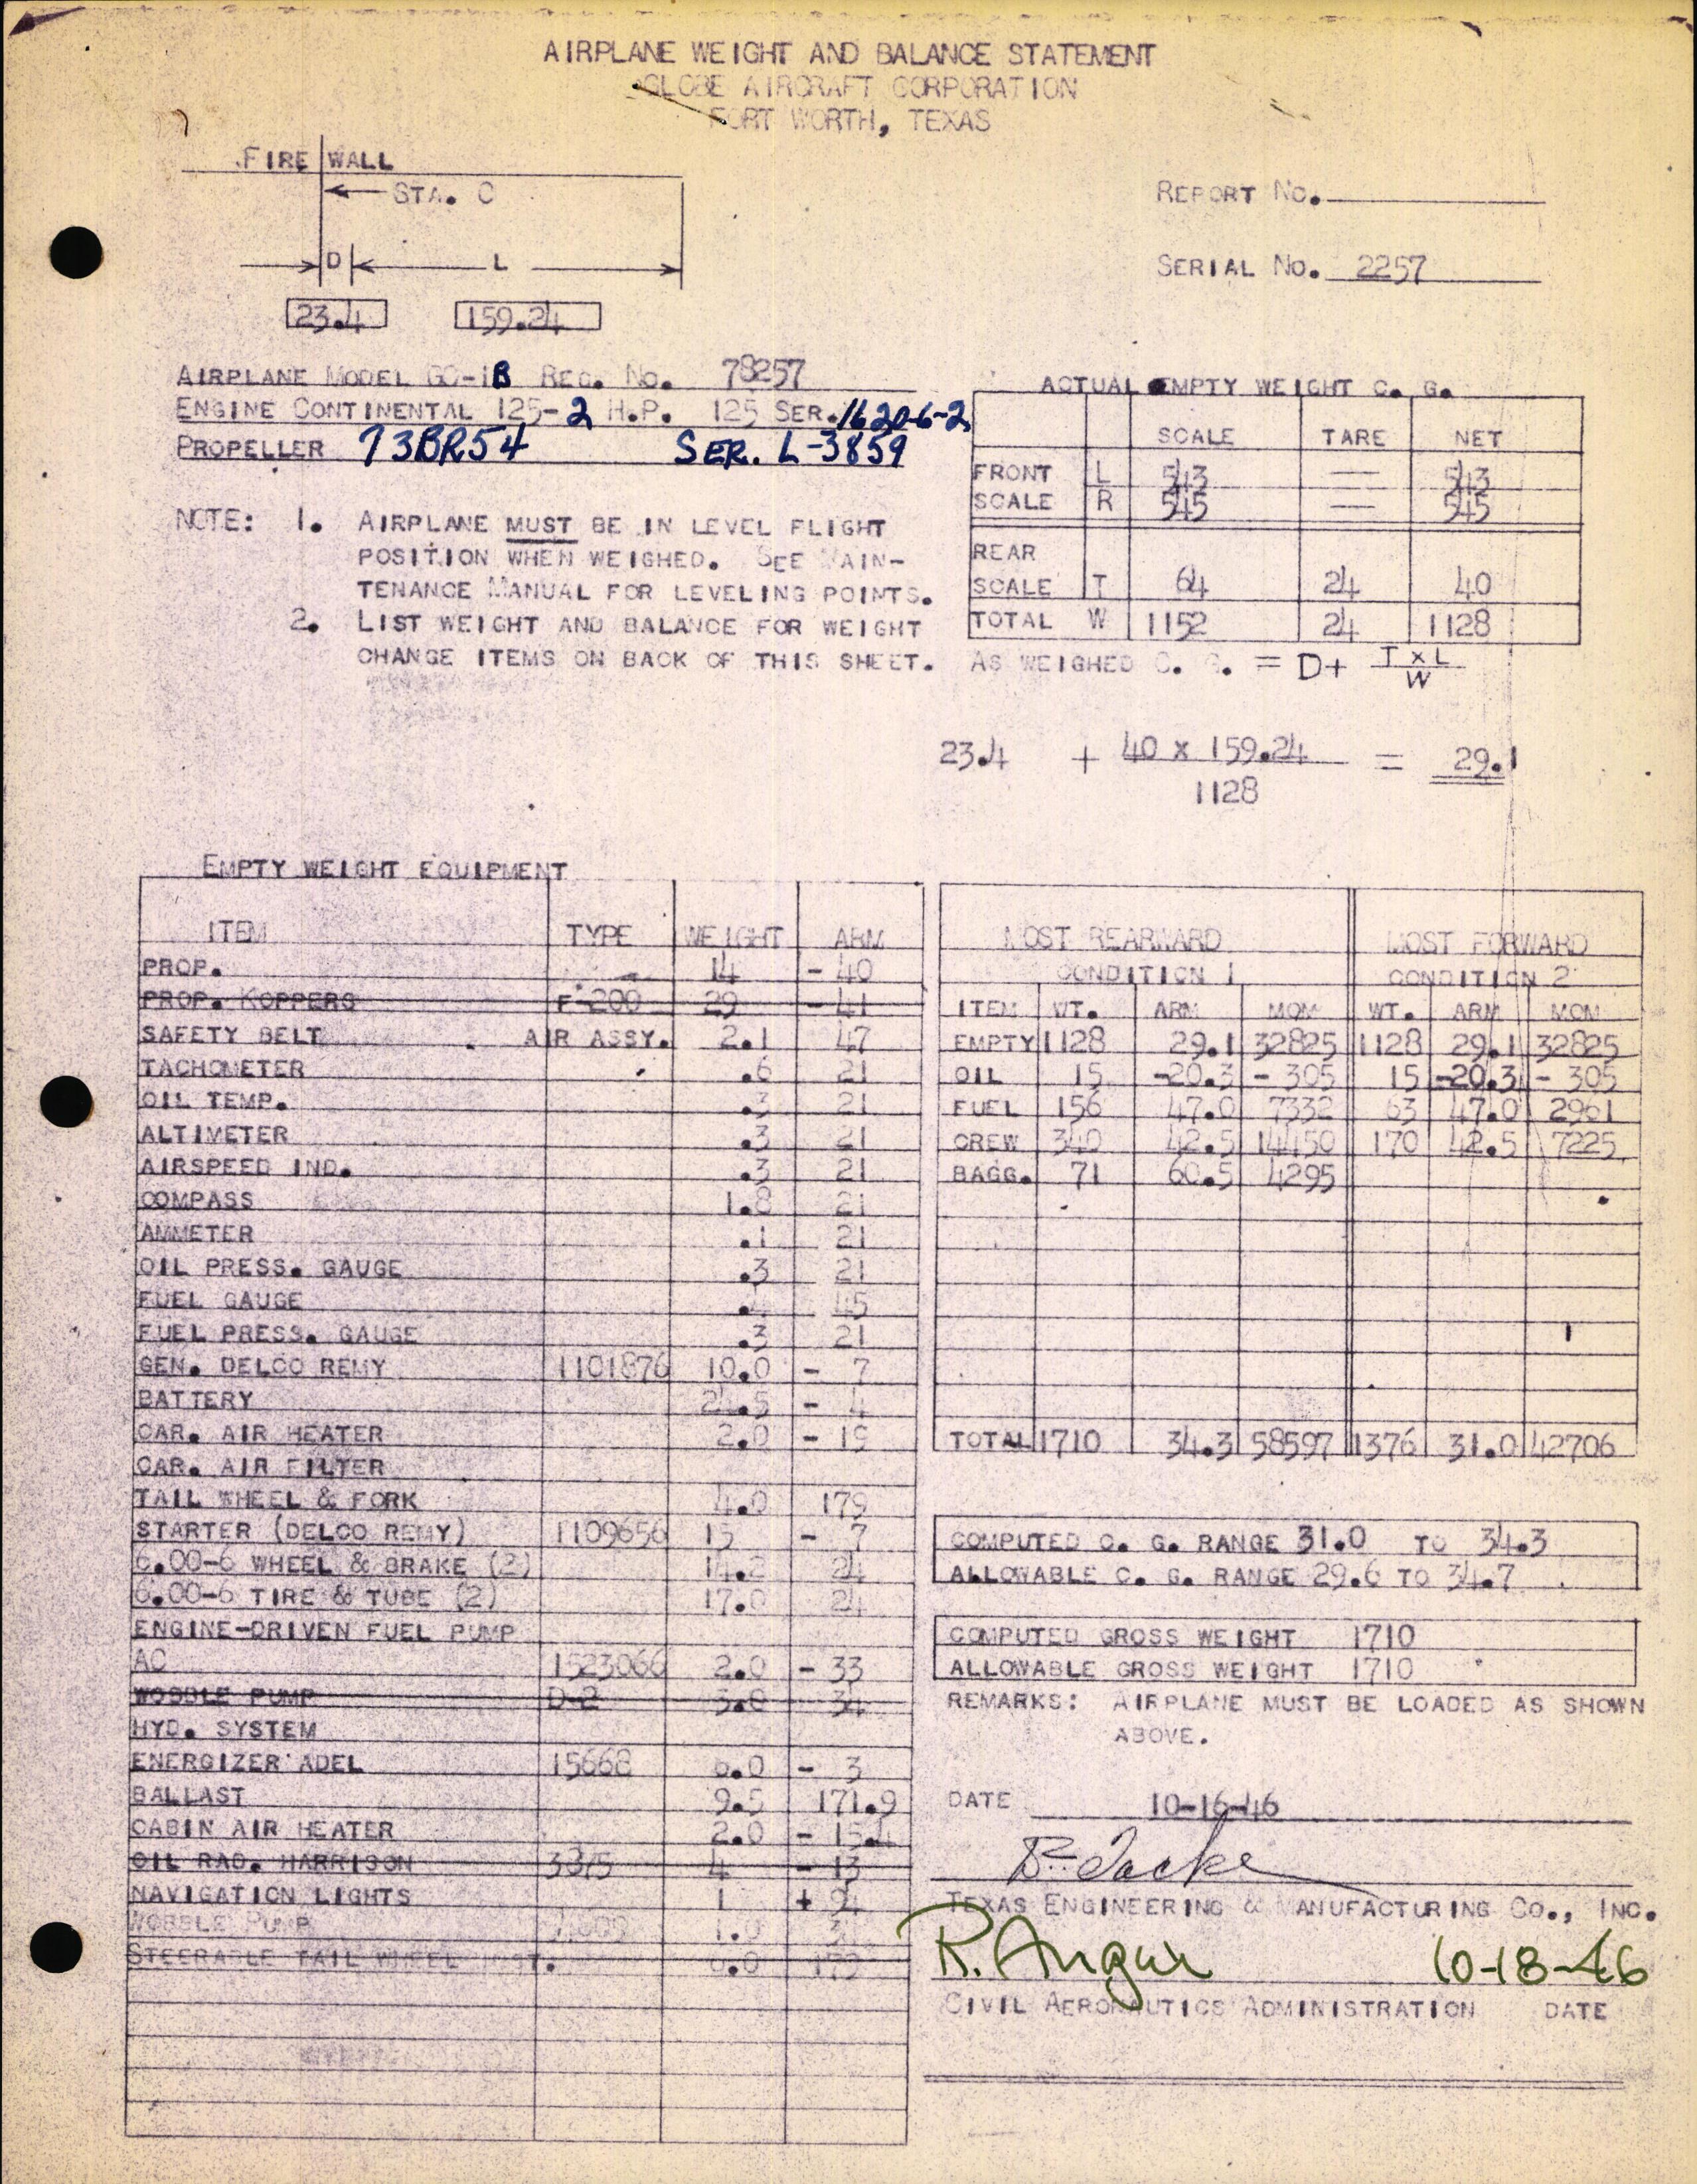 AIRPLANE WEIGHT AND BALANCE STATEMENT
GLOBE AIRCRAFT CORPORATION
FORT WORTH, TEXAS
FIRE WALL
STA. 0
D L
23.4 159.24
REPORT NO.
SERIAL NO. 2257
AIRPLANE MODEL GC-1B REG. NO. 78257
ENGINE CONTINENTAL 125-2 H.P. 125 SER. 16206-2
PROPELLER 73BR54 SER. L-3859
NOTE: 1. AIRPLANE MUST BE IN LEVEL FLIGHT
POSITION WHEN WEIGHED. SEE MAIN-
TENANCE MANUAL FOR LEVELING POINTS.
2. LIST WEIGHT AND BALANCE FOR WEIGHT
CHANGE ITEMS ON BACK OF THIS SHEET.
ACTUAL EMPTY WEIGHT C. G.
SCALE TARE NET
FRONT L 543 — 543
SCALE R 545 — 545
REAR
SCALE T 64 24 40
TOTAL W 1152 24 1128
AS WEIGHED C. G. = D+ T x L
W
23.4 + 40 x 159.24 = 29.1
1128
EMPTY WEIGHT EQUIPMENT
ITEM TYPE WEIGHT ARM
PROP. 14 - 40
PROP. KOPPERS F-200 29 - 41
SAFETY BELT AIR ASSY. 2.1 47
TACHOMETER .6 21
OIL TEMP. .3 21
ALTIMETER .3 21
AIRSPEED IND. .3 21
COMPASS 1.8 21
AMMETER .1 21
OIL PRESS. GAUGE .3 21
FUEL GAUGE 45
FUEL PRESS. GAUGE .3 21
GEN. DELCO REMY 1101876 10.0 - 7
BATTERY 24.5 - 4
CAR. AIR HEATER 2.0 - 19
CAR. AIR FILTER
TAIL WHEEL & FORK 4.0 179
STARTER (DELCO REMY) 1109656 15 - 7
6.00-6 WHEEL & BRAKE (2) 14.2 24
6.00-6 TIRE & TUBE (2) 17.0 24
ENGINE-DRIVEN FUEL PUMP
AC 1523066 2.0 - 33
WOBBLE PUMP D-2 3.0 - 34
HYD. SYSTEM
ENERGIZER ADEL 15668 6.0 - 3
BALLAST 9.5 171.9
CABIN AIR HEATER 2.0 - 15.4
OIL RAD. HARRISON 3375 4 - 13
NAVIGATION LIGHTS 1 + 94
WOBBLE PUMP 1.0
STEERABLE TAIL WHEEL 6.0 179
MOST REARWARD MOST FORWARD
CONDITION 1 CONDITION 2
ITEM WT. ARM MOM WT. ARM MOM
EMPTY 1128 29.1 32825 1128 29.1 32825
OIL 15 -20.3 - 305 15 -20.3 - 305
FUEL 156 47.0 7332 63 47.0 2961
CREW 340 42.5 14450 170 42.5 7225
BAGG. 71 60.5 4295
TOTAL 1710 34.3 58597 1376 31.0 42706
COMPUTED C. G. RANGE 31.0 TO 34.3
ALLOWABLE C. G. RANGE 29.6 TO 34.7
COMPUTED GROSS WEIGHT 1710
ALLOWABLE GROSS WEIGHT 1710
REMARKS: AIRPLANE MUST BE LOADED AS SHOWN
ABOVE.
DATE 10-16-46
TEXAS ENGINEERING & MANUFACTURING CO., INC.
R. Angur 10-18-46
CIVIL AERONAUTICS ADMINISTRATION DATE